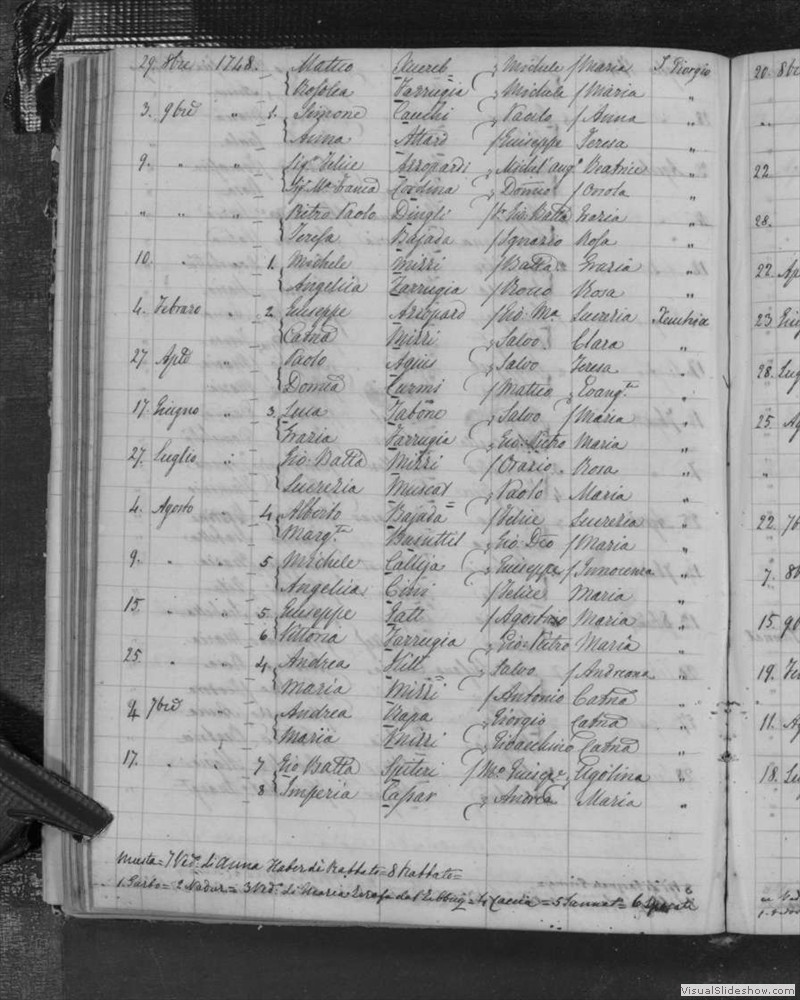 29. 8bre 1748. Matteo Xuereb Michele / Maria S. Giorgio 20. 8b
Rosolea Farrugia Michele / Maria "
3. 9bre " 1. Simone Cauchi Paolo / Anna "
Anna Attard / Giuseppe Teresa "
9. " " Sig. Felice Arropardi Michel'ang.o Beatrice " 22
Sig. Ma. Cassolina / Orsola "
" " " Pietro Paolo Dingli Gio: Batta Grazia " 28.
Teresa Bajada / Ignazio Rosa "
10. " 1. Michele Mizzi / Batta Grazia " 22. Ap
Angelica Farrugia / Rocco Rosa "
4. Febraro " 2. Giuseppe Azzopard / Gio: Ma. Lucrezia Xeuchia 23 Giu
Catna Mizzi Salvo Clara "
27 Aple " Paolo Agius Salvo Teresa " 28. Lug
Domca Curmi / Matteo Evang.ta "
17. Giugno " 3. Luca Zabone Salvo / Maria " 25. Ag
Grazia Farrugia Gio: Pietro Maria "
27. Luglio " Gio: Batta Mizzi / Orazio Rosa " "
Lucrezia Muscat Paolo Maria "
4. Agosto " 4. Alberto Bajada / Felice Lucrezia " 22 7b
Marg.ta Buhuttil Gio: Dco / Maria "
9. " " 5. Michele Calleja Giuseppe / Innocenza " 7. 8b
Angelica Cini / Felice Maria "
15. " " 5. Giuseppe Gatt / Agostino Maria " 15. 9b
6 Vittoria Farrugia Gio: Pietro Maria "
25. " " 4. Andrea Hill Salvo / Andreana " 19.
Maria Mizzi / Antonio Catna "
4 7bre Andrea Rapa Giorgio Catna " 11. Ag
Maria Mizzi Gioacchino Catna "
17. " 7 Gio Batta Spiteri Ugolina " 18. Lu
8 Imperia Caspar Andrea Maria "
Musta = 7 Ved. di Anna Haber di Rabbato = 8 Rabbato =
1. Garbo = 2 Nadur = 3 Ved. di Maria = 4 Caccia = 5 Sannat = 6
VisualSlideshow.com